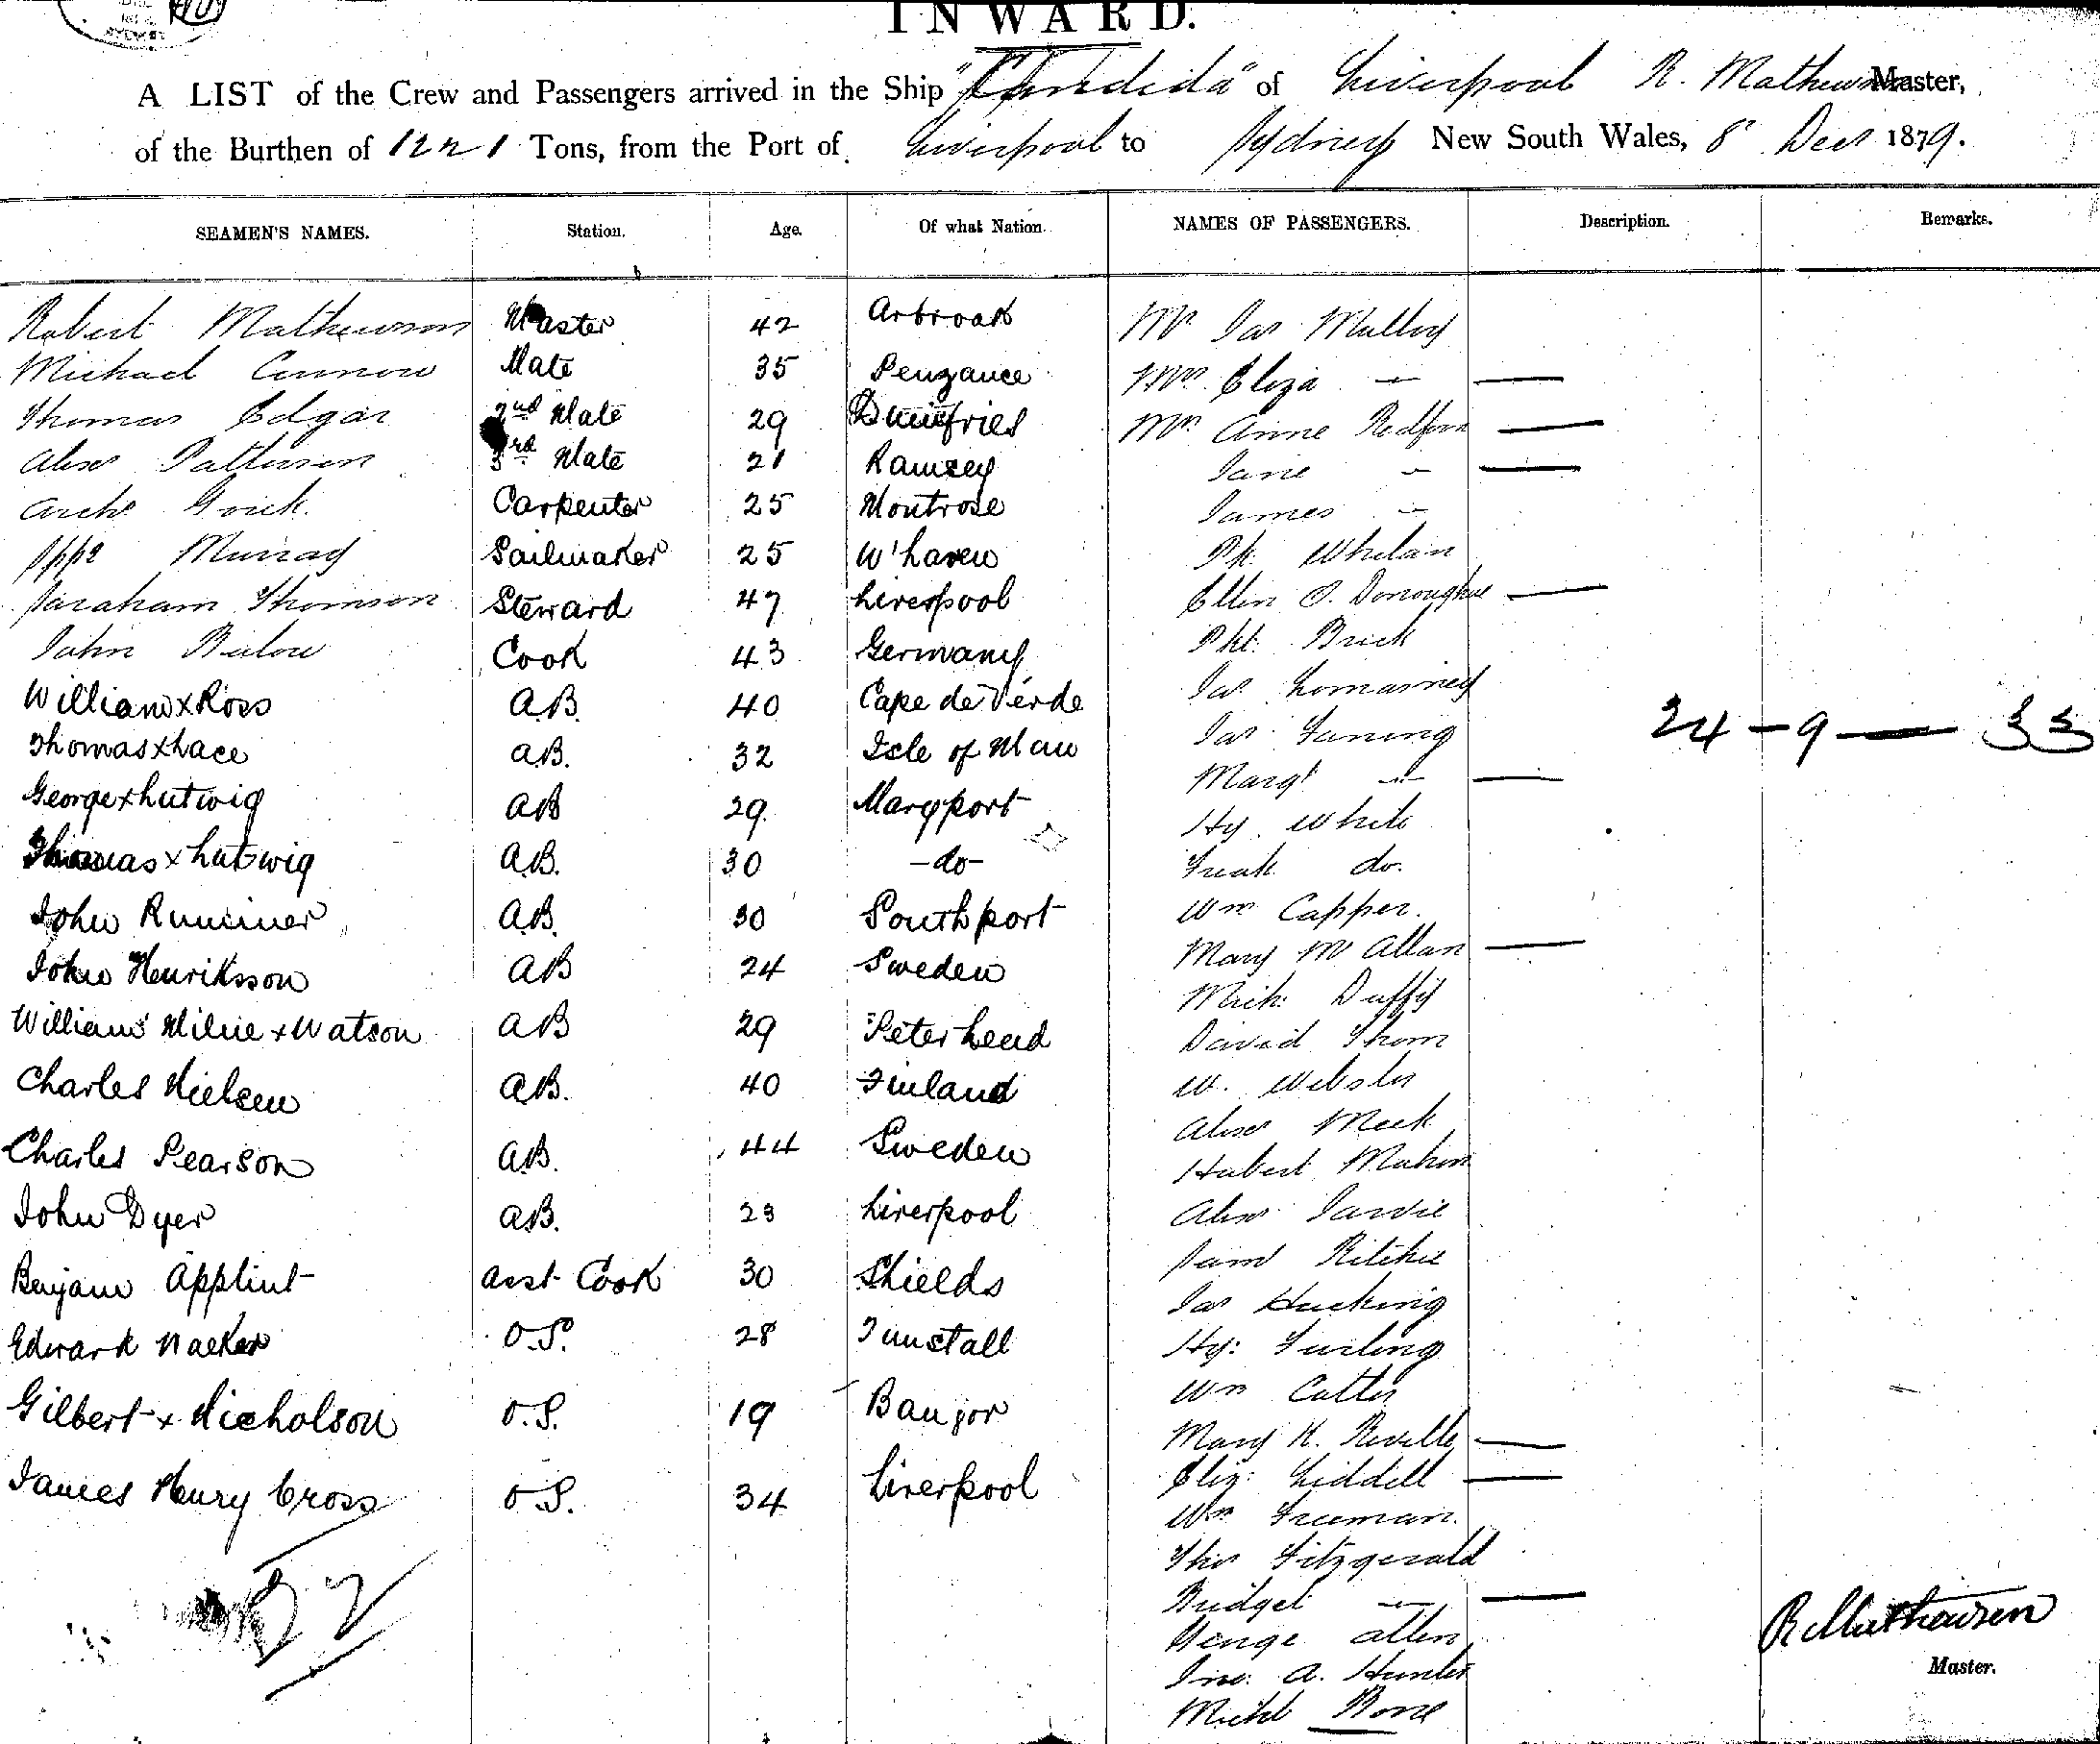 INWARD.
A LIST of the Crew and Passengers arrived in the Ship "Candida" of Liverpool R. Mathewson Master,
of the Burthen of 1221 Tons, from the Port of Liverpool to Sydney New South Wales, 8 Decr 1879.
SEAMEN'S NAMES. Station. Age. Of what Nation. NAMES OF PASSENGERS. Description. Remarks.
Robert Mathewson Master 42 Arbroath Mr Jas Malloy
Michael Curnow Mate 35 Penzance Mrs Eliza —
Thomas Edgar 2nd Mate 29 Dumfries Mrs Anne Redfern —
Alexr Patterson 3rd Mate 21 Ramsey Jane —
Archd Carpenter 25 Montrose James
Murray Sailmaker 25 W'haven Pk Whelan
Thomson Steward 47 Liverpool Ellen O. Donoughue —
John Cook 43 Germany Pkt: Brick
William x Ross A.B. 40 Cape de Verde Jas
Thomas x Lace A.B. 32 Isle of Man Jas Faning 24 – 9 — 33
George x Lutwig AB 29 Maryport Margt —
Hy. White
Thomas x Lutwig A.B. 30 – do – do.
John Rummer A.B. 30 Southport Wm Capper.
John Henriksson AB 24 Sweden Mary Mc Allan —
Mich: Duffy
William Milne x Watson AB 29 Peterhead David Thom
Charles Nielsen A.B. 40 Finland W. Webster
Alexr Meek
Charles Pearson A.B. 44 Sweden Hubert Mahon
John Dyer A.B. 23 Liverpool Alexr Jardie
Benjamn Applint Asst Cook 30 Shields Ritchie
Jas Hucking
Edward O.S. 28 Tunstall Hy: Furlong
Gilbert x Nicholson O.S. 19 Bangor Wm Cutter
Mary K. Reville —
James Henry Cross O.S. 34 Liverpool Eliz: Liddell —
Wm Freeman.
Thos Fitzgerald
22 Bridget —
George Allen
Jno: A. Hunter
Michl
R Mathewson
Master.